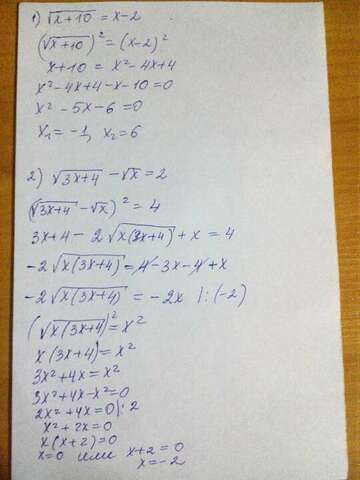 1) √x+10 = x-2
(√x+10)² = (x-2)²
x+10 = x²-4x+4
x²-4x+4-x-10=0
x²-5x-6=0
x₁=-1, x₂=6
2) √3x+4 - √x = 2
(√3x+4 - √x)² = 4
3x+4-2√x(3x+4) + x = 4
-2√x(3x+4) = 4-3x-4+x
-2√x(3x+4) = -2x |:(-2)
(√x(3x+4))² = x²
x(3x+4) = x²
3x²+4x = x²
3x²+4x-x²=0
2x²+4x=0|:2
x²+2x=0
x(x+2)=0
x=0 или x+2=0
x=-2